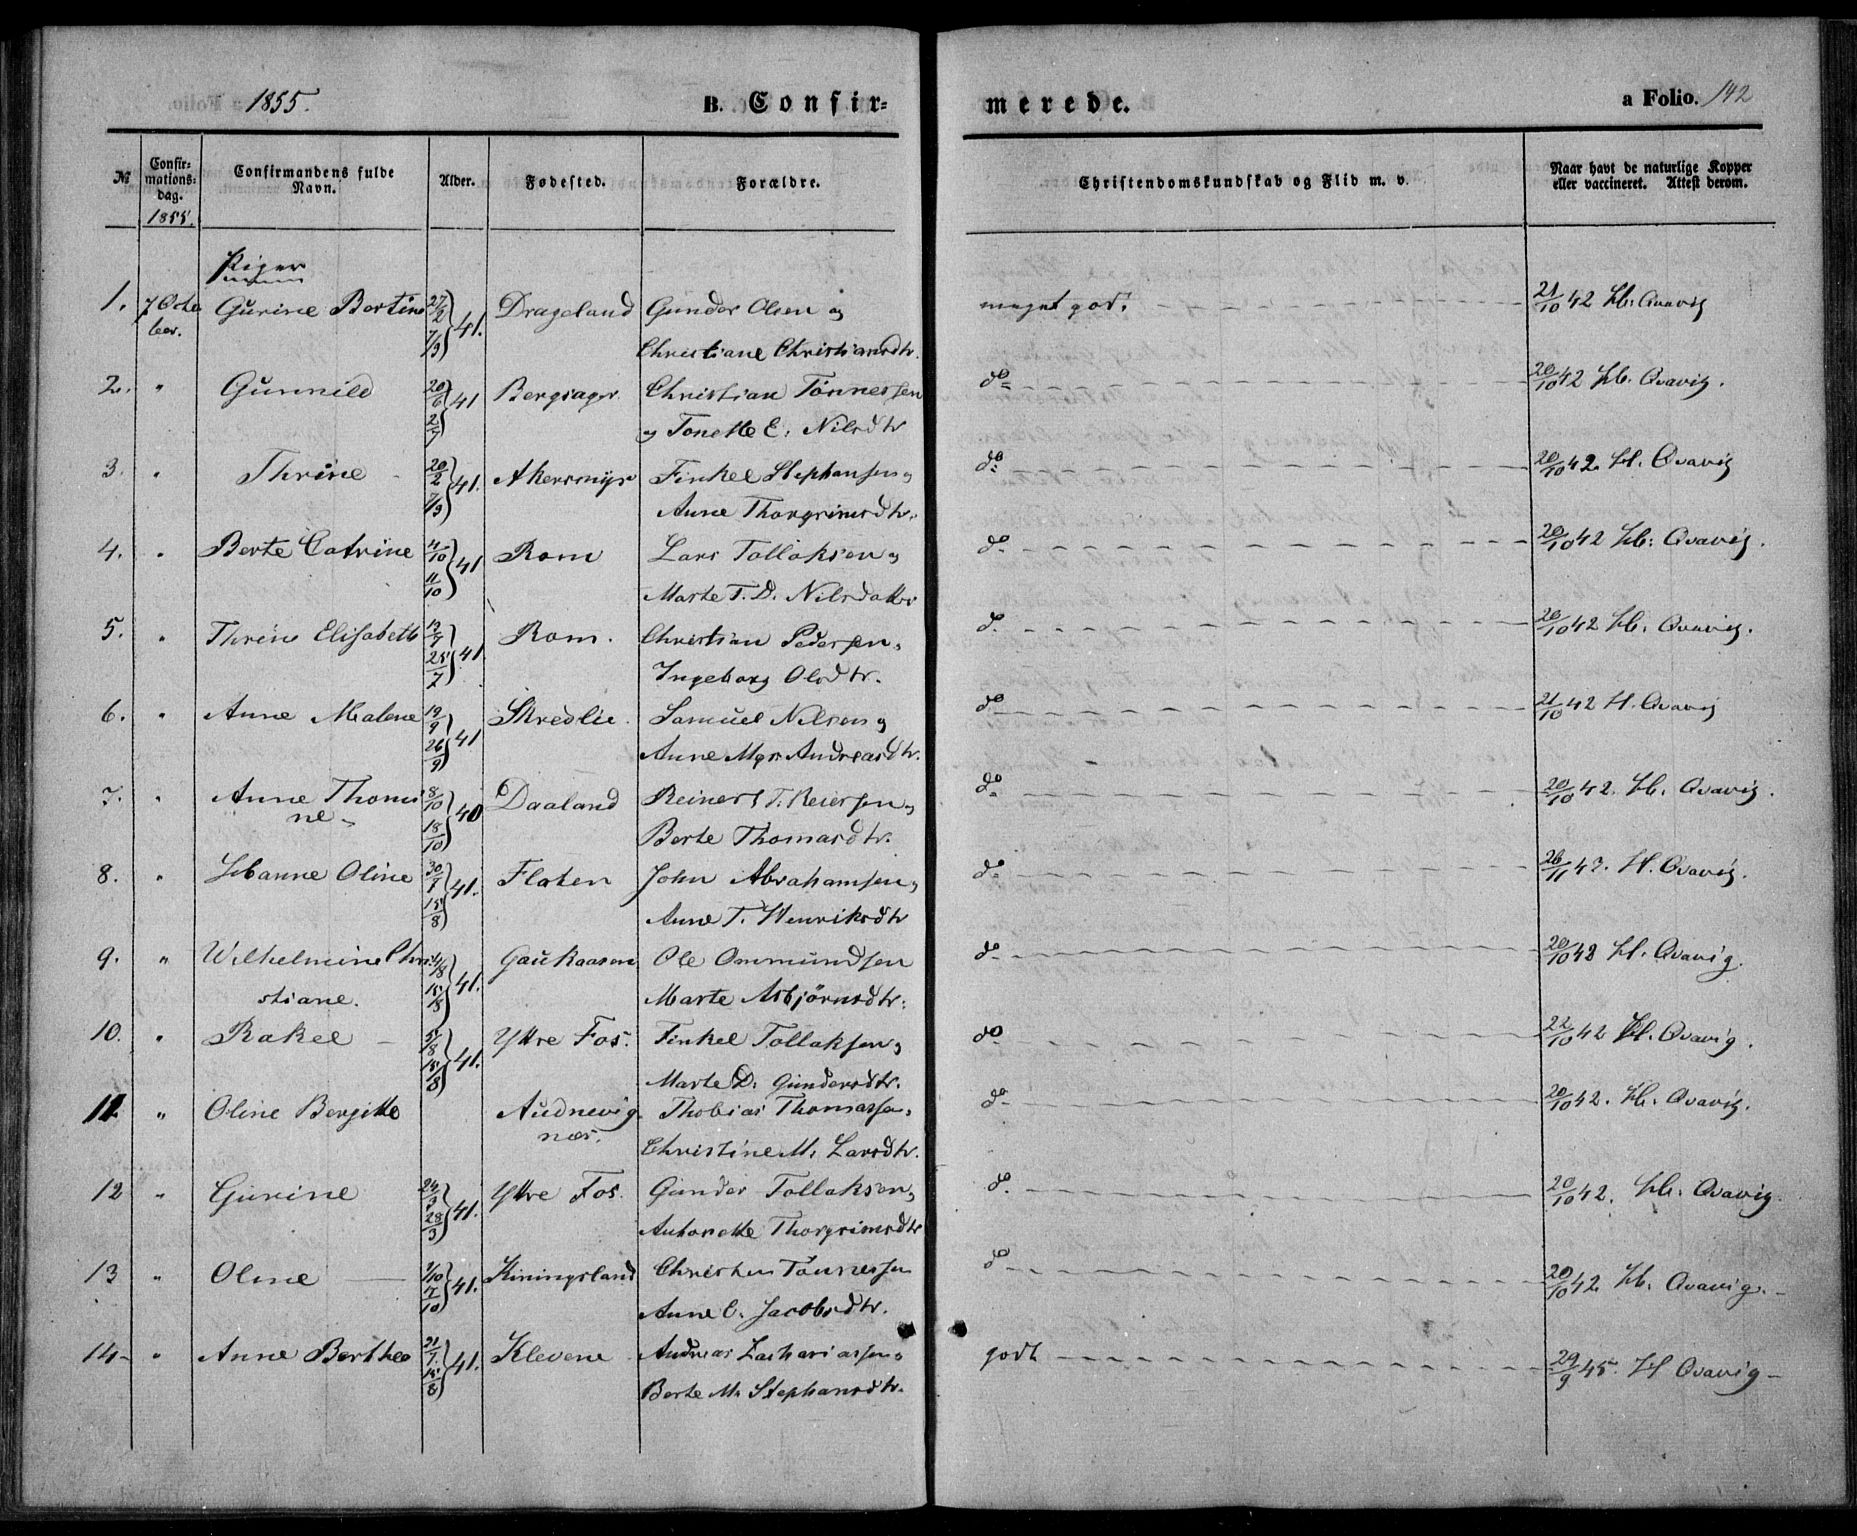 1855. B. Confir= merede. a Folio. 142
№ Confirmations=dag. 1855. Confirmandens fulde Navn. Alder. Fødested. Forældre. Christendomskundskab og Flid m. v. Naar havt de naturlige Kopper eller vaccineret. Attest derom.
Piger
1. 7 Octo Gurine Bertine 27/2 41. Drageland Gunder Olsen og meget god. 21/10 42 Hb. Qvavig
ber. 7/3 Christiane Christiansdtr.
2. " Gunnild 20/6 41 Bergsager Christian Tönnessen do 20/10 42 Hb. Qvavig.
2/7 og Tonette E. Nilsdtr
3. " Thrine - 20/2 41. Akersmyr Finkel Stephansen og do 20/10 42. H. Qvavig
7/3 Anne Thorgrimsdtr.
4. " Berte Catrine 41 Rom Lars Tollaksen og do. 20/10 42 Hb. Qvavig.
11/10 Marte T. D. Nilsdatter
5. " Thrine Elisabeth 41. Rom. Christian Pedersen, d. 20/10 42 Hb. Qvavig.
25/7 Ingeborg Olsdtr.
6. " Anne Malene 19/9 41 Skredlie. Samuel Nilsen og do 21/10 42 H. Qvavig
26/9 Anne Mgr. Andreasdtr.
7. " Anne Thomi 8/10 40 Daaland Reinert T. Reiersen og do 20/10 42. Hb. Qvavig.
ne - 18/10 Berte Thomasdtr.
8. " Hanne Oline 30/7 41. Flaten John Abrahamsen, do 26/11 43. H. Qvavig.
15/8 Anne T. Henriksdtr
9. " Wilhelmine Chri 4/8 41. Gaukaasen Ole Ommundsen do 20/10 42 H. Qvavig.
stiane. 15/8 Marte Asbjörnsdtr.
10. " Rakel - 5/8 41. Yttre Fos. Finkel Tollaksen, do 22/10 42 H. Qvavig.
15/8 Marte D. Gundersdtr.
11 " Oline Bergitte Audnevig Thobias Thomassen, do 20/10 42. Hb. Qvavig.
næs. Christine M. Larsdtr.
12 " Gurine 24/3 41. Yttre Fos. Gunder Tollaksen, d. 20/10 42. Hb. Qvavig.
28/3 Antonette Thorgrimsdtr
13 " Oline - 1/10 41. Kiningsland Christen Tönnessen do 20/10 42 Hb. Qvavig. -
7/10 Anne E. Jacobsdtr.
14 - " Anne Berthe 21/7 41. Klevene Andreas Zachariassen, godt 29/9 45. H Qvavig -
15/8 Berte M. Stephansdtr.